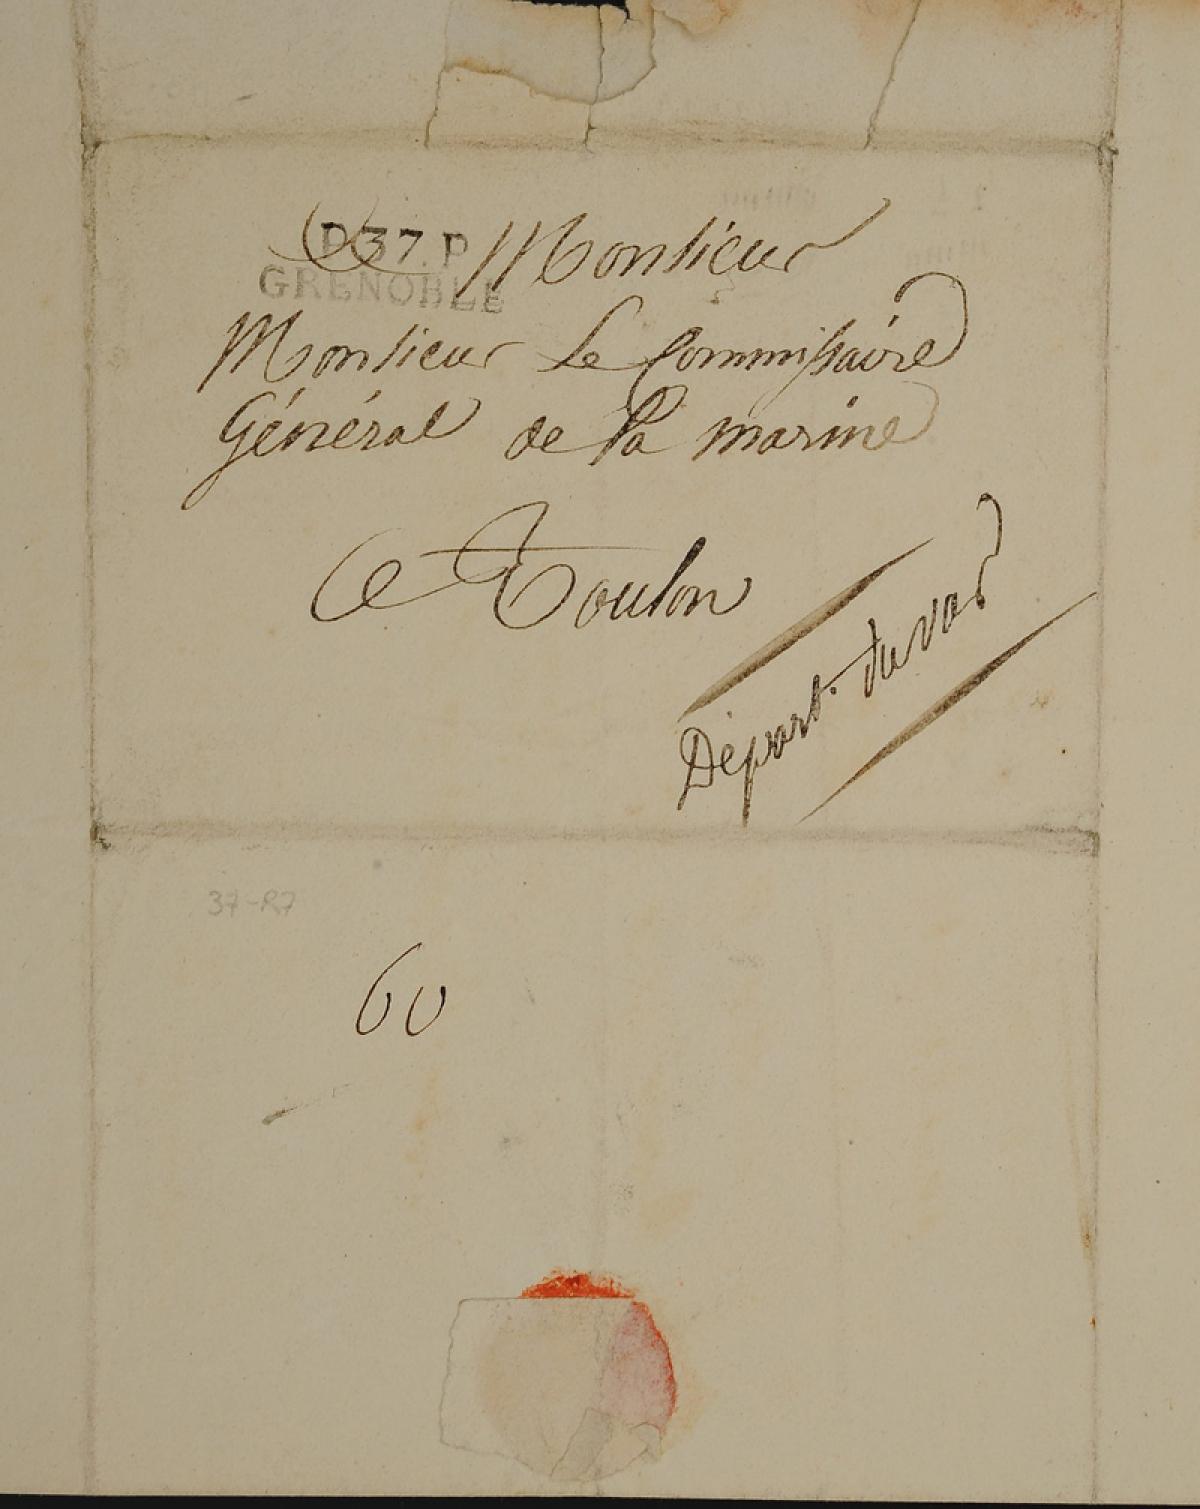 P.37.P
GRENOBLE
A Monsieur
Monsieur Le Commissaire
Général de la marine
A Toulon
Départ. du var
37-R7
60